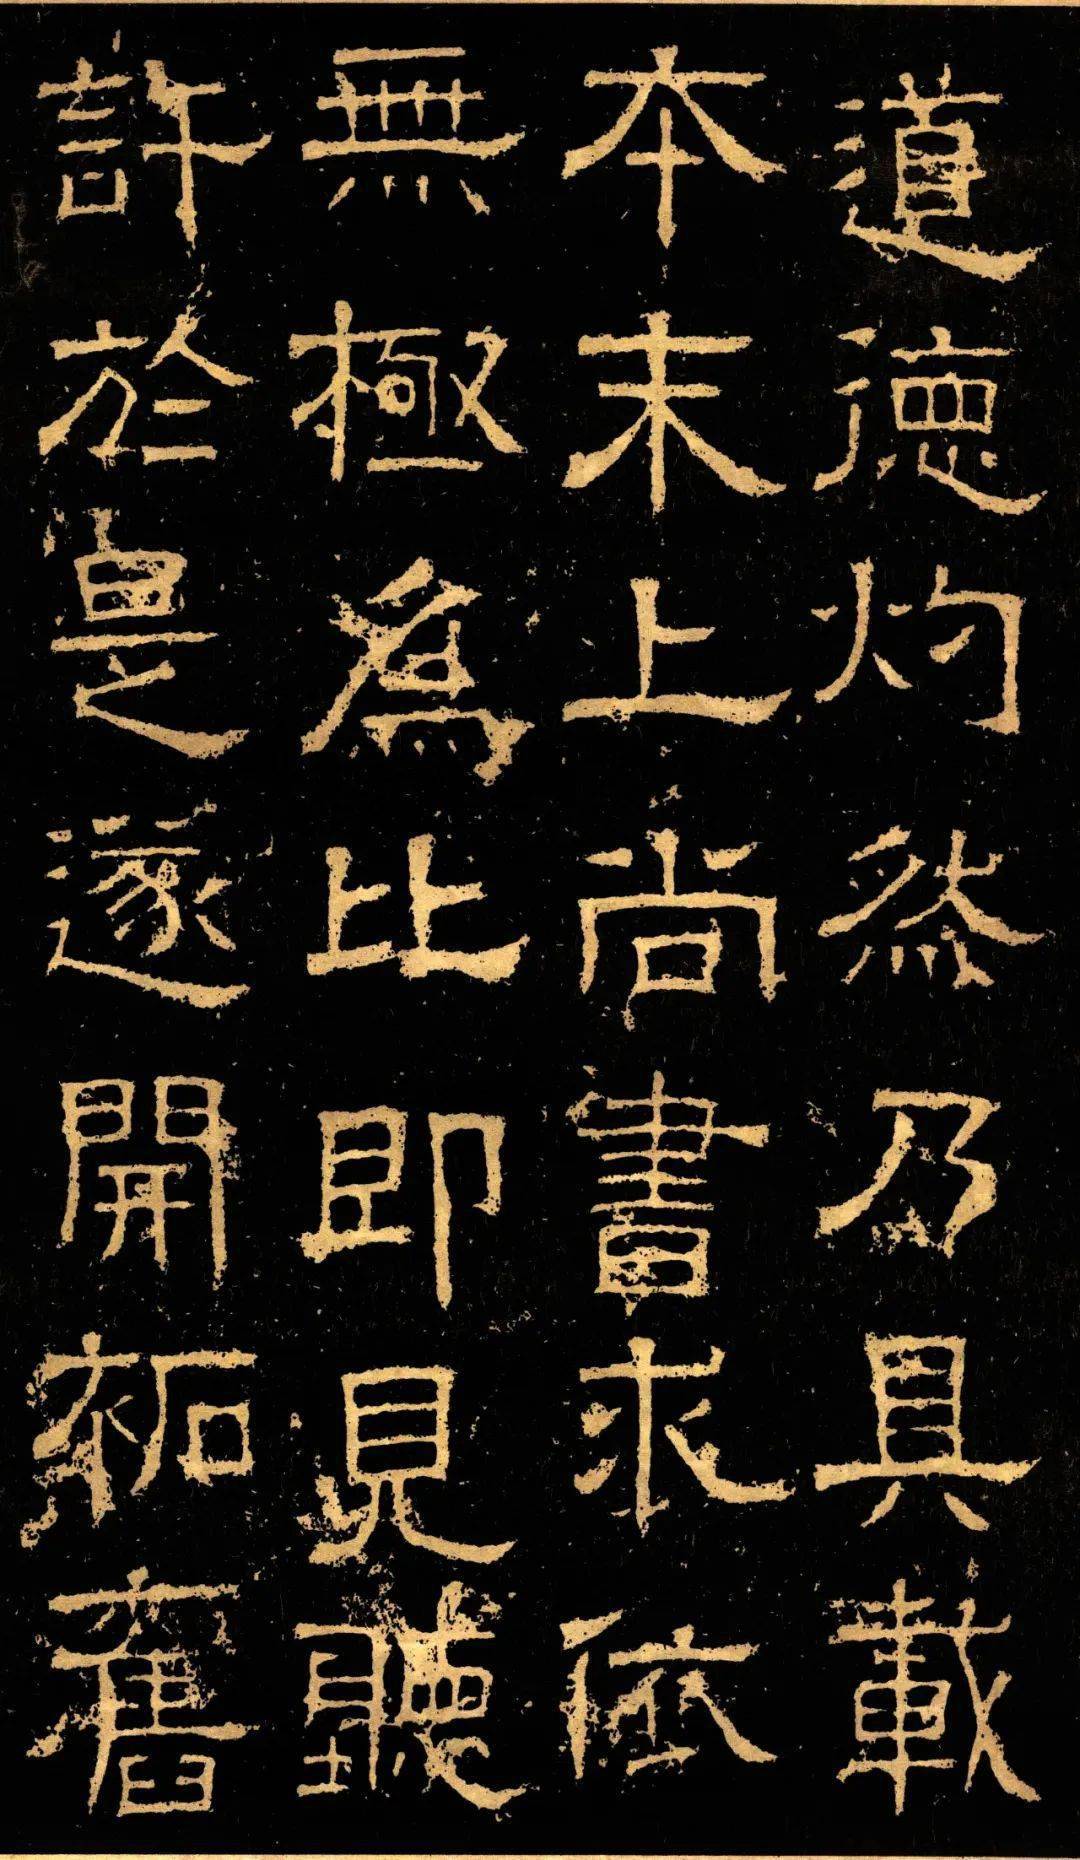 道德灼然乃具載
本末上尚書求依
無極爲比即見聽
許於是遂開拓舊